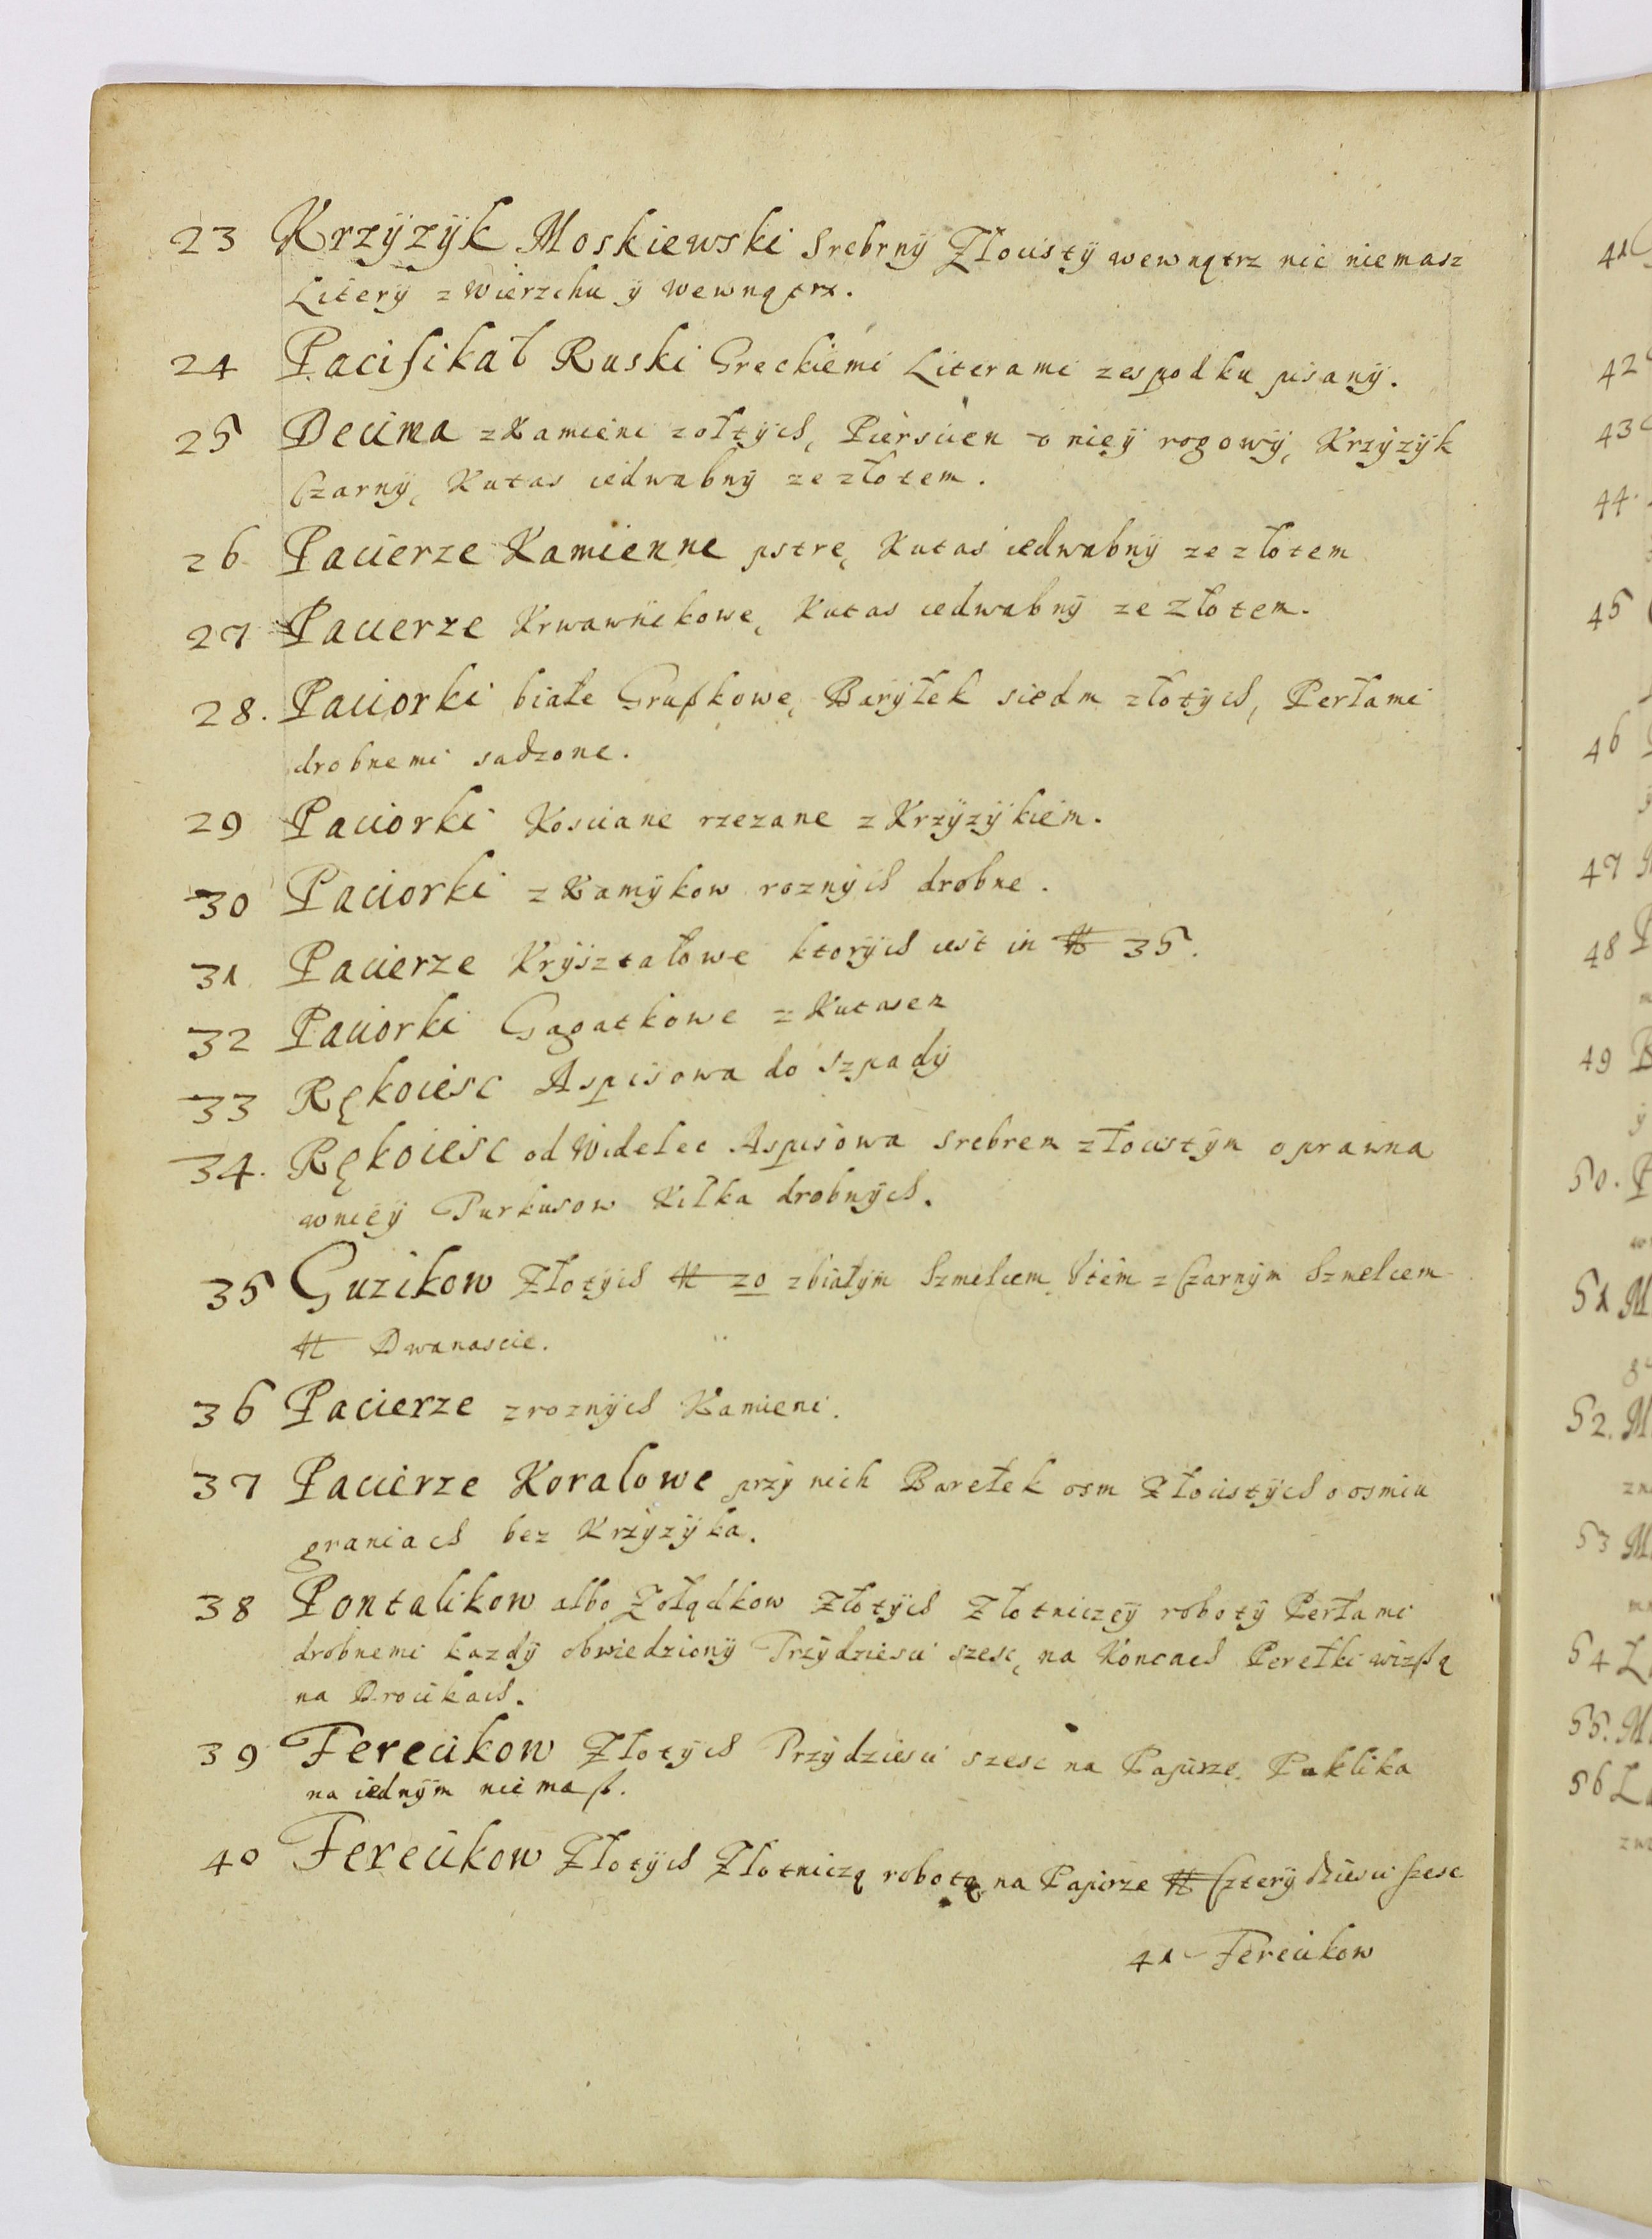 23 Krzÿzÿk Moskiewski Srebrnÿ Złocistÿ wewnątrz nic niemasz
Literÿ z Wierzchu ÿ wewnątrz.
24 Pacifikał Ruski Greckiemi Literami zespodku pisanÿ.
25 Decima z Kamieni zołtÿch, Pierscien v nieÿ rogowÿ, Krzÿzÿk
Czarnÿ, Kutas iedwabnÿ ze złotem.
26 Pacierze Kamienne pstre, Kutas iedwabnÿ ze złotem
27 Pacierze Krwawnikowe, Kutas iedwabnÿ ze złotem.
28. Paciorki białe Gruszkowe, Barÿłek siedm złotÿch, Perłami
drobnemi sadzone.
29 Paciorki Kosciane rzezane z Krzÿzÿkiem.
30 Paciorki z Kamÿkow roznÿch drobne.
31 Pacierze Krÿształowe ktorÿch iest in N 35.
32 Paciorki Gagatkowe z Kutasem
33 Rękoiesc Aspisowa do Szpadÿ
34. Rękoiesc od Widelec Aspisowa srebrem złocistÿm oprawna
wnieÿ Turkusow Kilka drobnÿch.
35 Guzikow Złotÿch N 20 z białÿm Szmelcem, Item z Czarnÿm Szmelcem
N Dwanascie.
36 Pacierze z roznÿch Kamieni.
37 Pacierze Koralowe przÿ nich Barełek osm Złocistÿch o osmiu
graniach bez Krzÿzÿka.
38 Pontalikow albo Zołądkow Złotÿch Złotniczeÿ robotÿ Perłami
drobnemi kazdÿ obwiedzionÿ Trzÿdziesci szesc, na Koncach Perełki wiszą
na Drocikach.
39 Ferecikow Złotÿch Trzÿdziesci szesc na Papirze, Puklika
na iednÿm niemasz.
40 Ferecikow Złotÿch Złotniczą robotą na Papirze N Czterÿdziesci szesc
41 Ferecikow
41
42
43
44.
45
46
47
48
49
50.
51 M
52. M
53 M
54 L
55. M
56 L